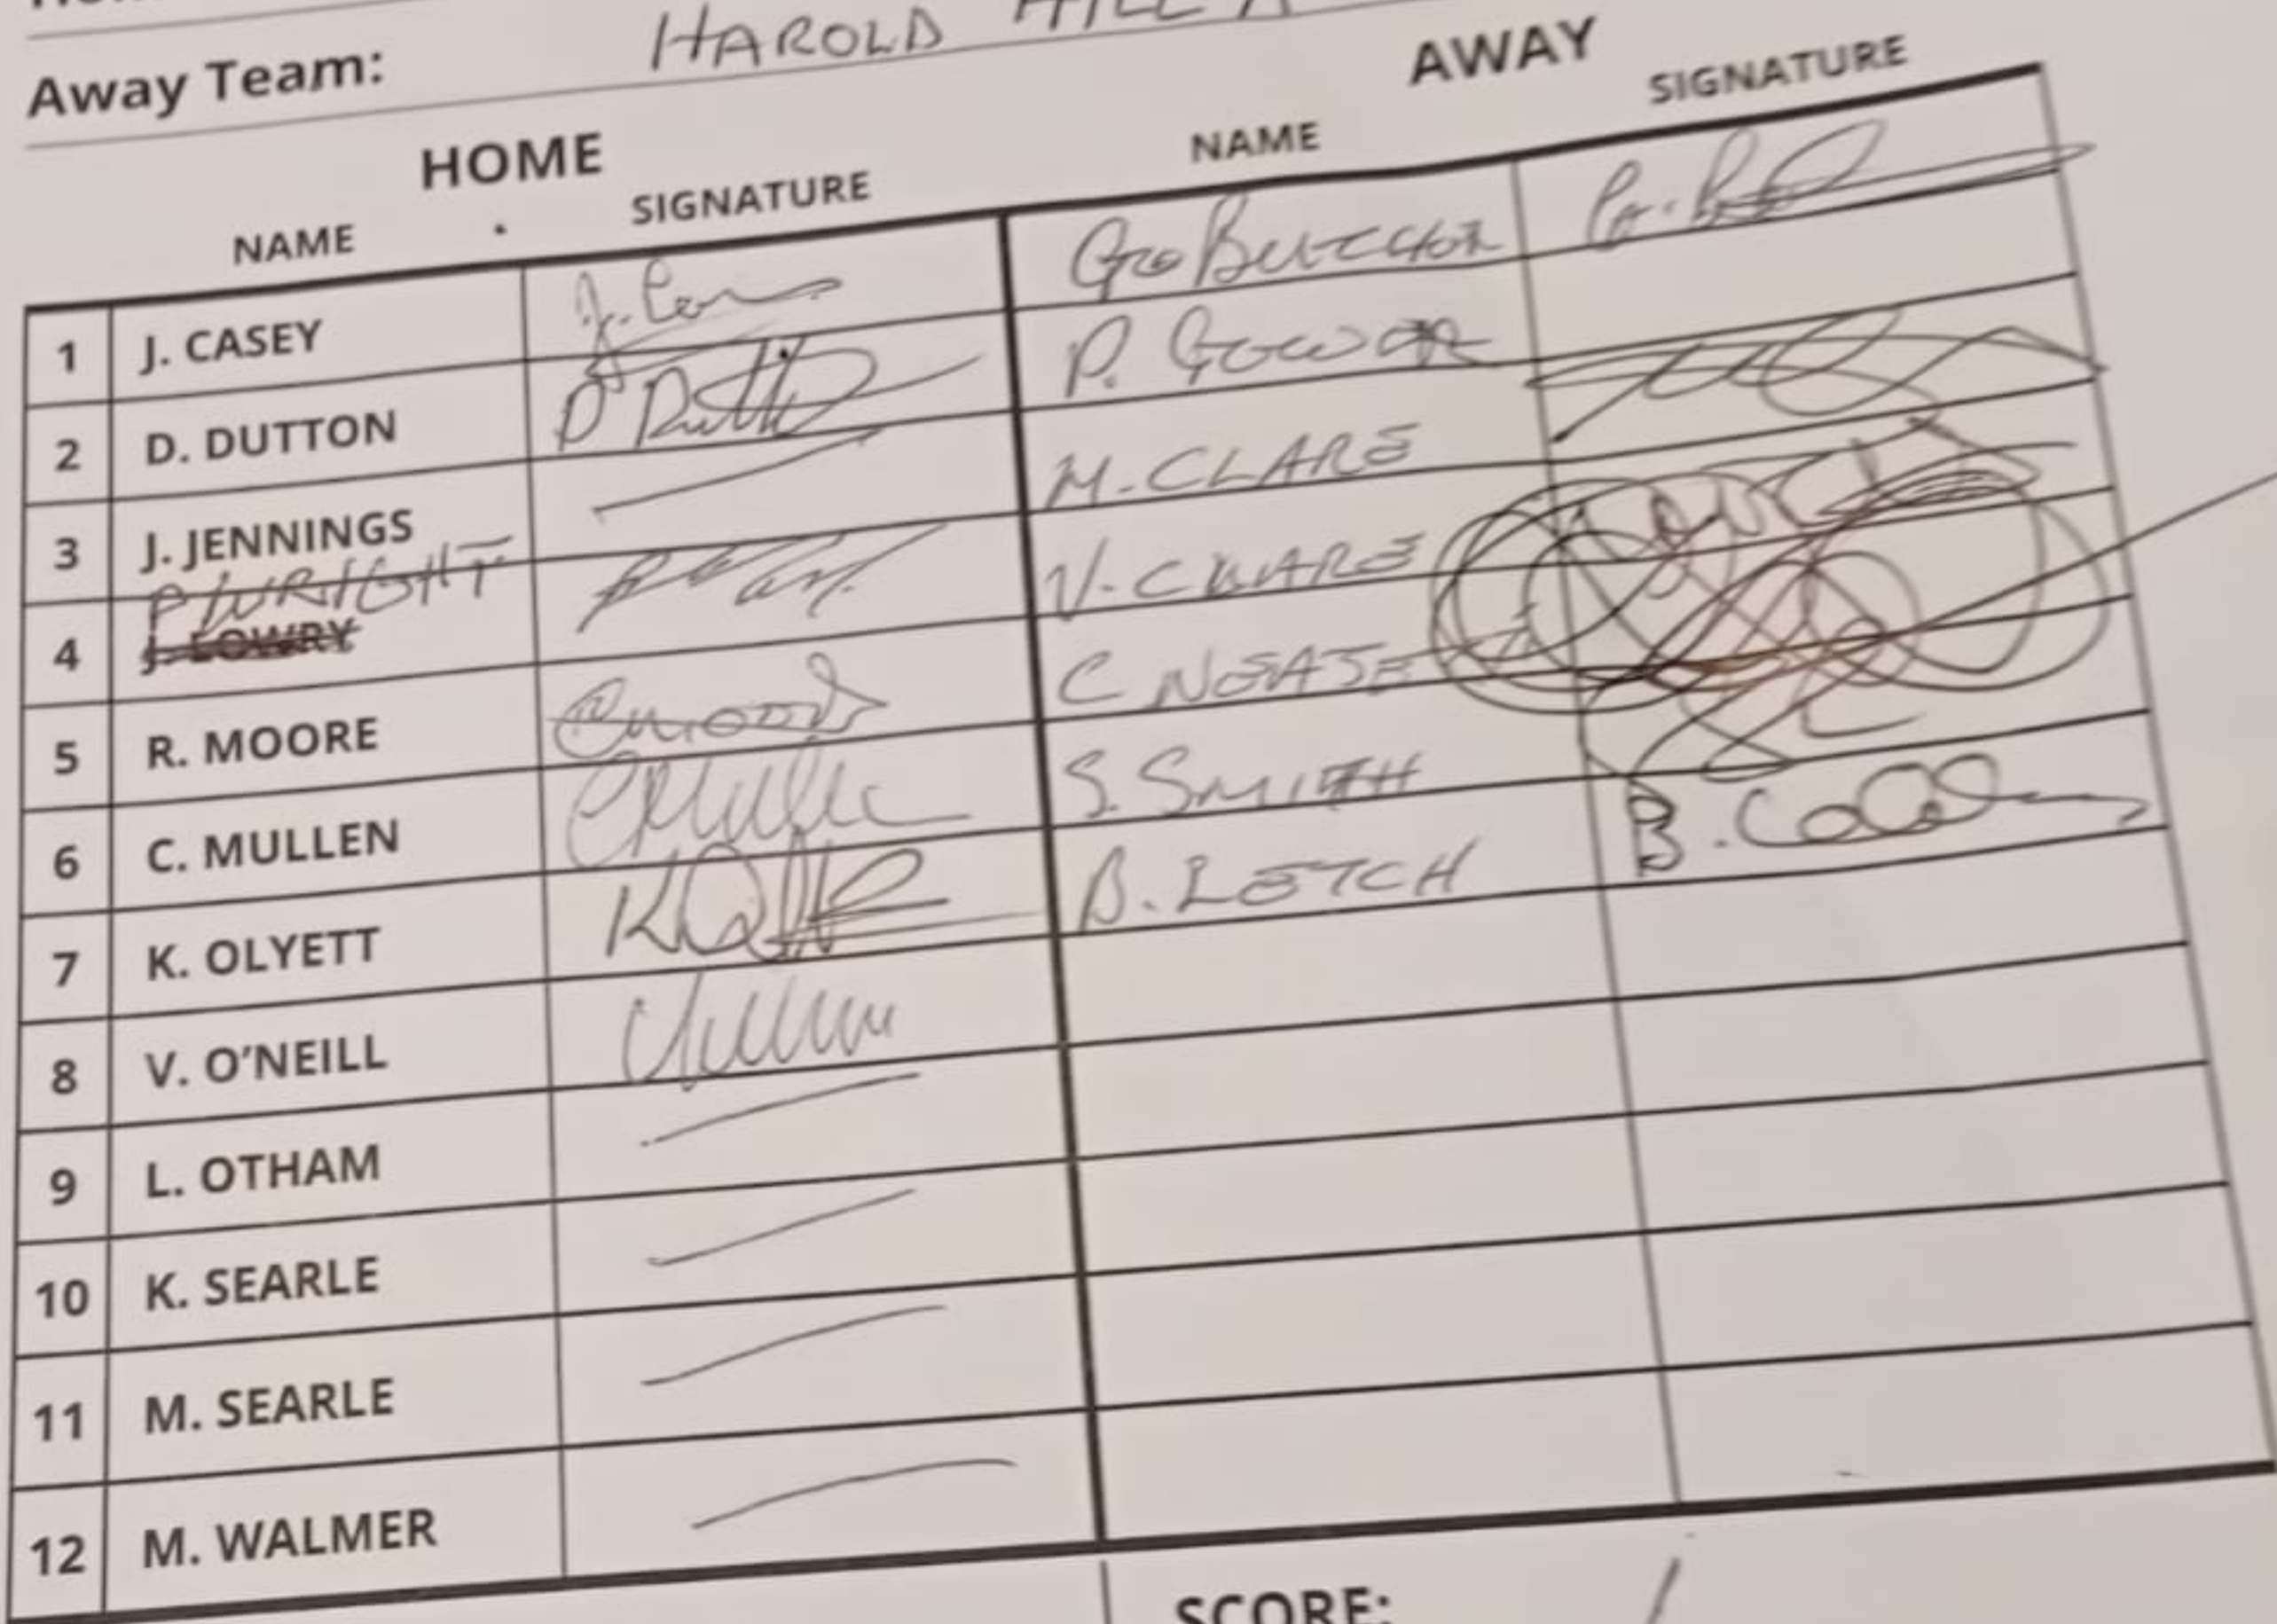 Away Team: HAROLD HILL A
HOME AWAY
NAME SIGNATURE NAME SIGNATURE
1 J. CASEY Geo BUTCHER
2 D. DUTTON D Dutton P. GOWER
3 J. JENNINGS M. CLARE
P WRIGHT
4 J. LOWRY V. CLARE
5 R. MOORE C NEATE
6 C. MULLEN C Mullen S. SMITH
7 K. OLYETT B. LETCH
8 V. O'NEILL
9 L. OTHAM
10 K. SEARLE
11 M. SEARLE
12 M. WALMER
SCORE: